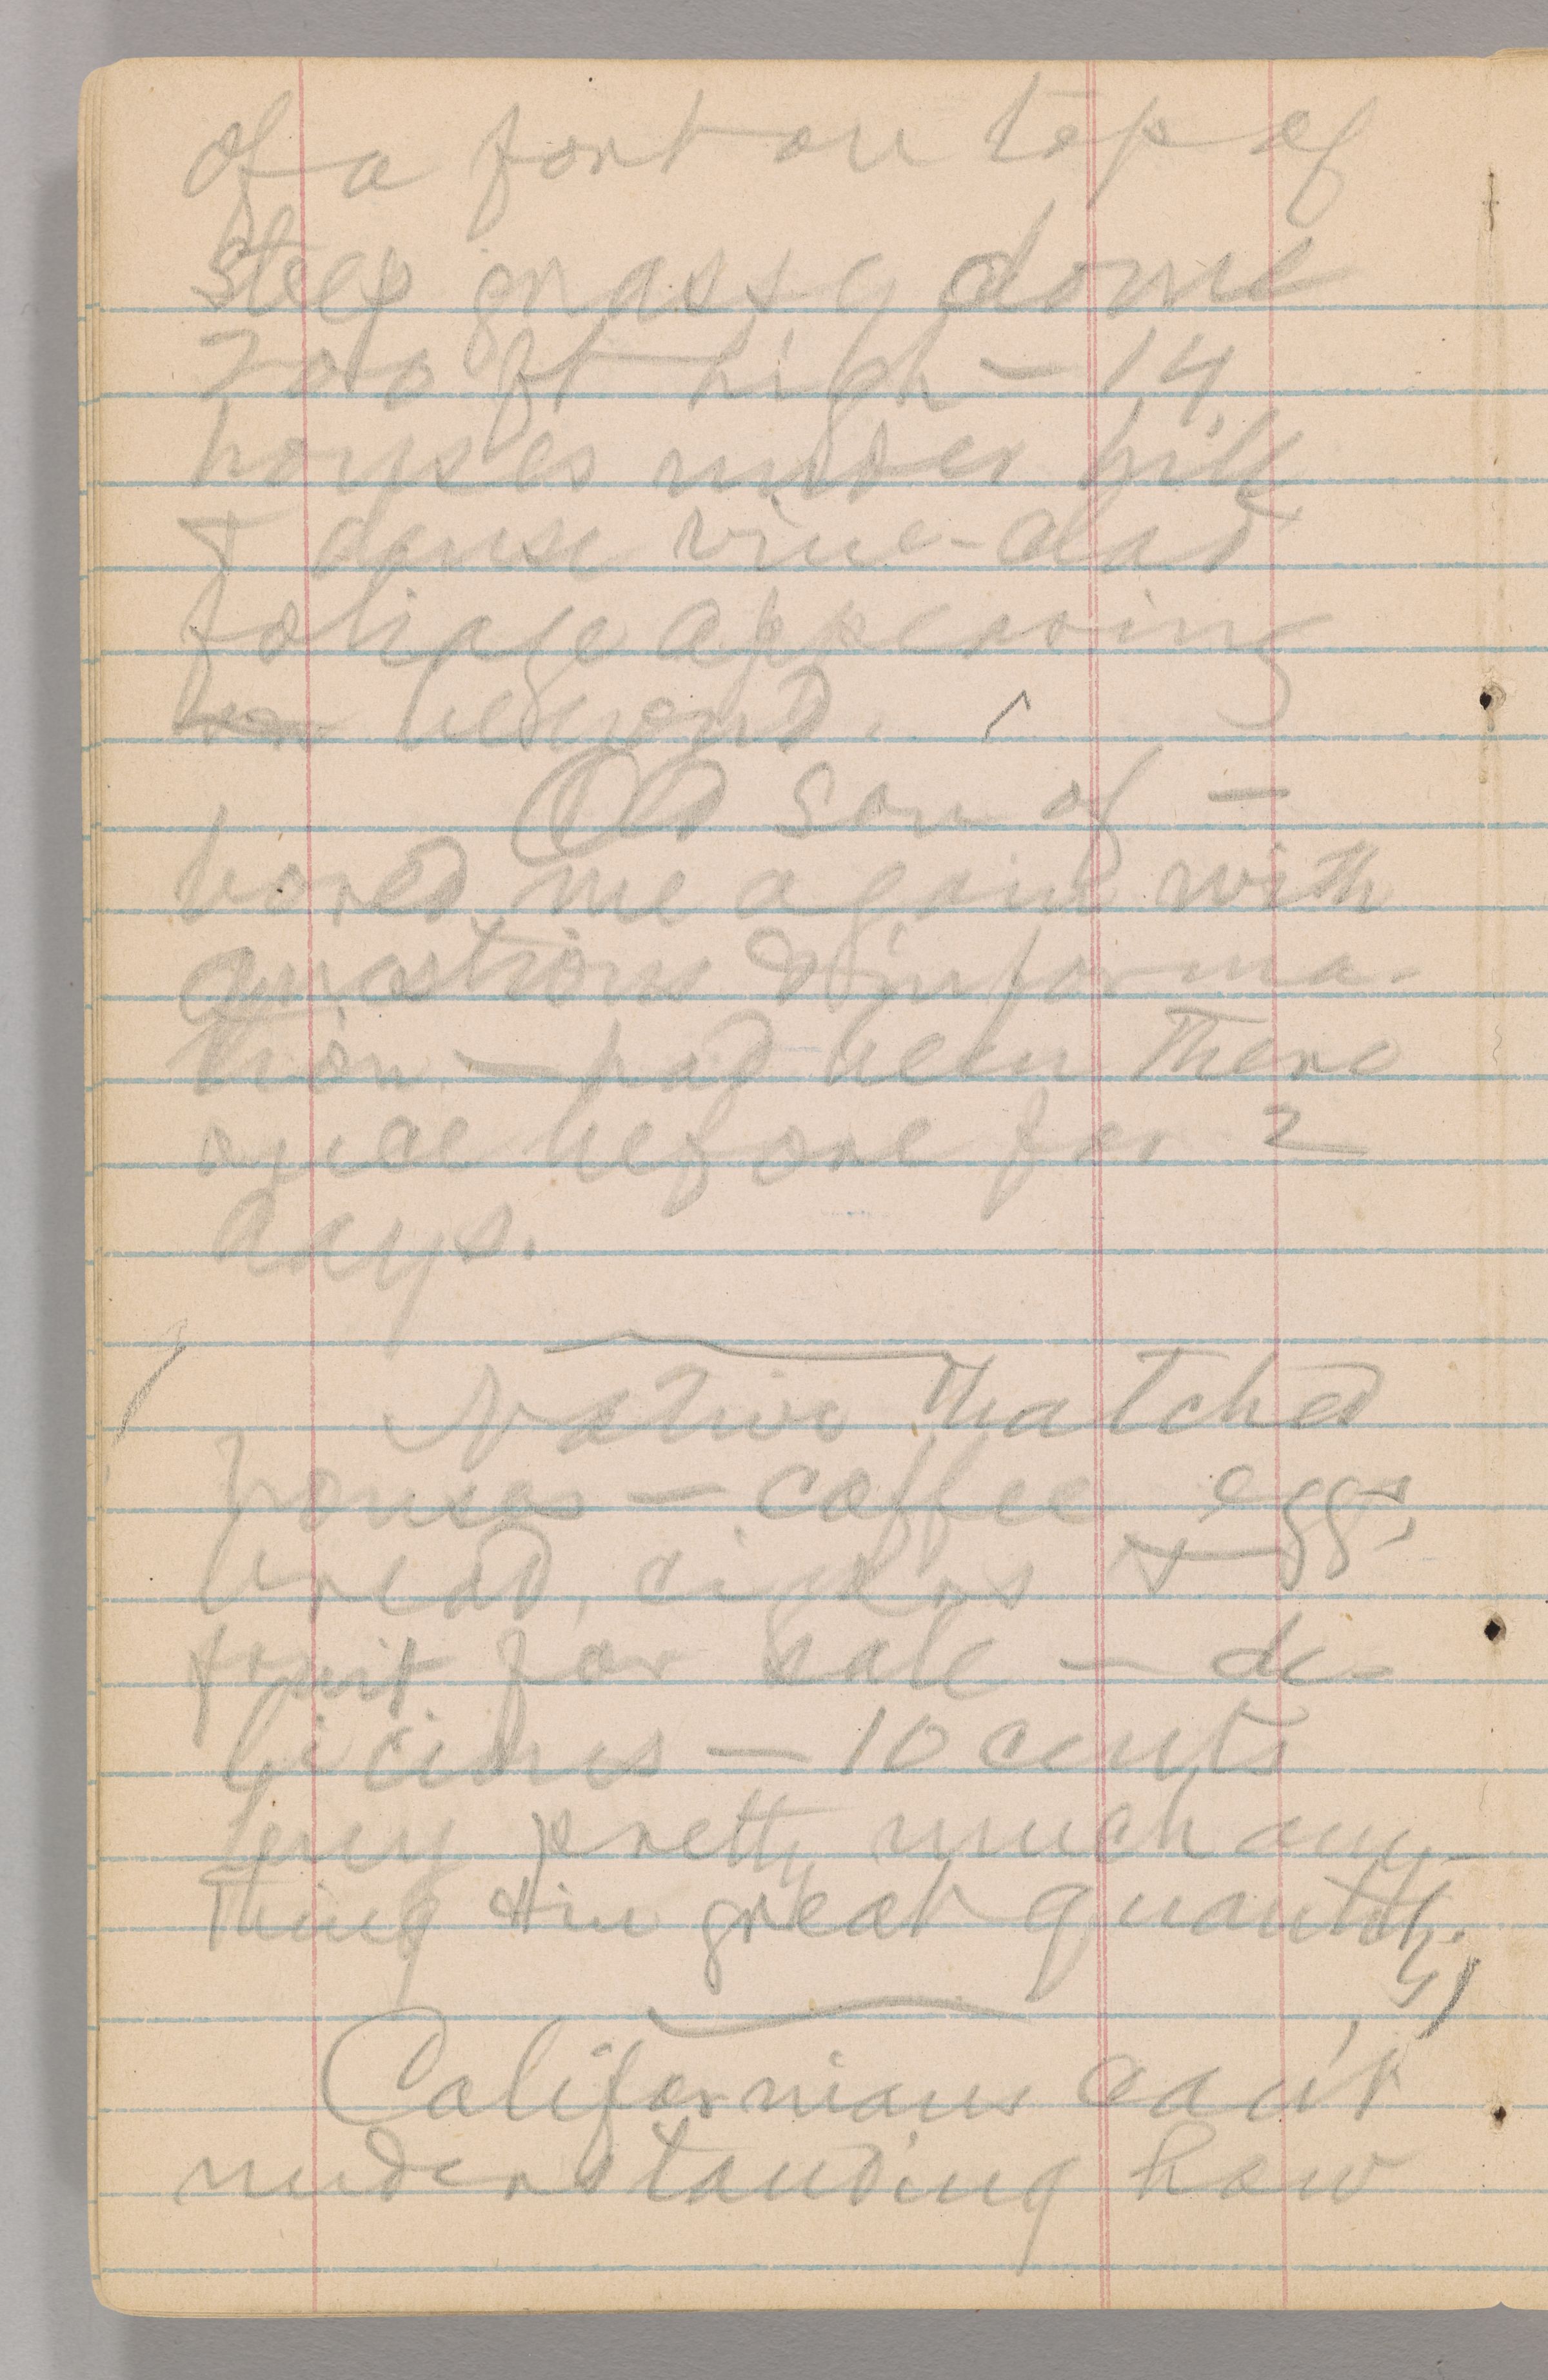 of a fort on top of
steep grassy dome
200 ft high – 14
houses under hill
& dense vine-clad
foliage appearing
beyond.
Old Son of –
bored me again with
questions & informa-
tion – had been there
once before for 2
days.
Native thatched
houses – coffee, eggs,
bread, cigars &
fruit for sale – de-
licious – 10 cents
buy pretty much any-
thing & in great quantity.
Californians can't
understanding how